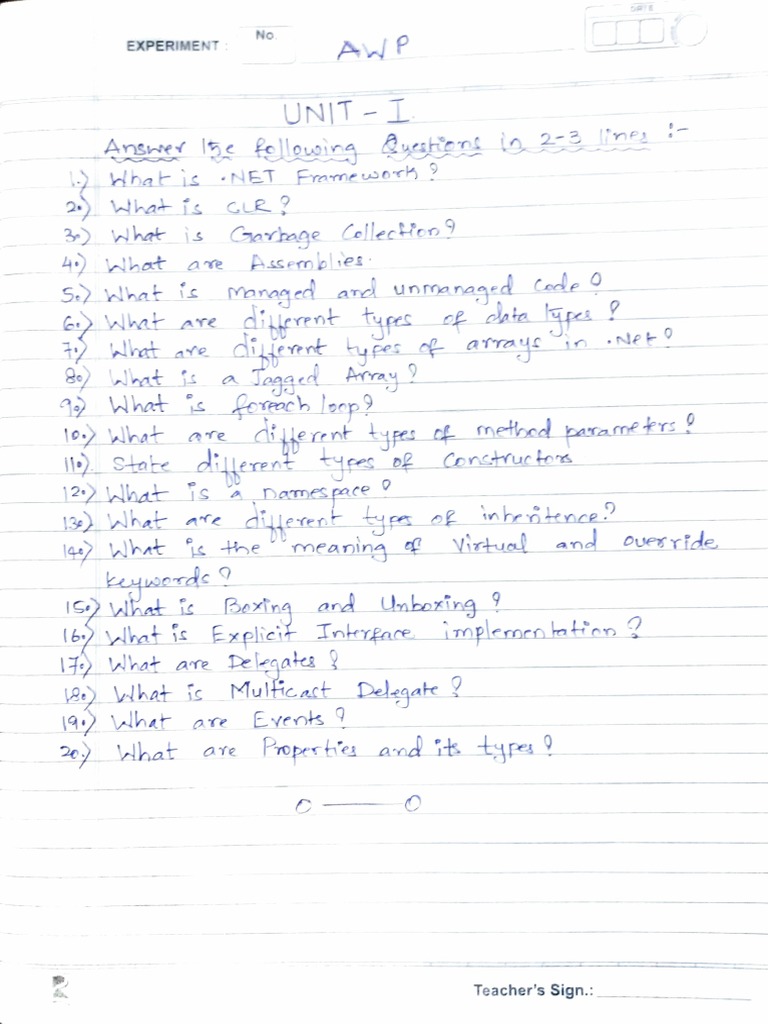 EXPERIMENT : No. AWP
DATE
UNIT - I
Answer the following Questions in 2-3 lines :-
1.) What is .NET Framework?
2.) What is CLR?
3.) What is Garbage Collection?
4.) What are Assemblies.
5.) What is managed and unmanaged code?
6.) What are different types of data types?
7.) What are different types of arrays in .Net?
8.) What is a Jagged Array?
9.) What is foreach loop?
10.) What are different types of method parameters?
11.) State different types of constructors
12.) What is a namespace?
13.) What are different types of inheritence?
14.) What is the meaning of Virtual and override
keywords?
15.) What is Boxing and Unboxing?
16.) What is Explicit Interface implementation?
17.) What are Delegates?
18.) What is Multicast Delegate?
19.) What are Events?
20.) What are Properties and its types?
Teacher's Sign.: